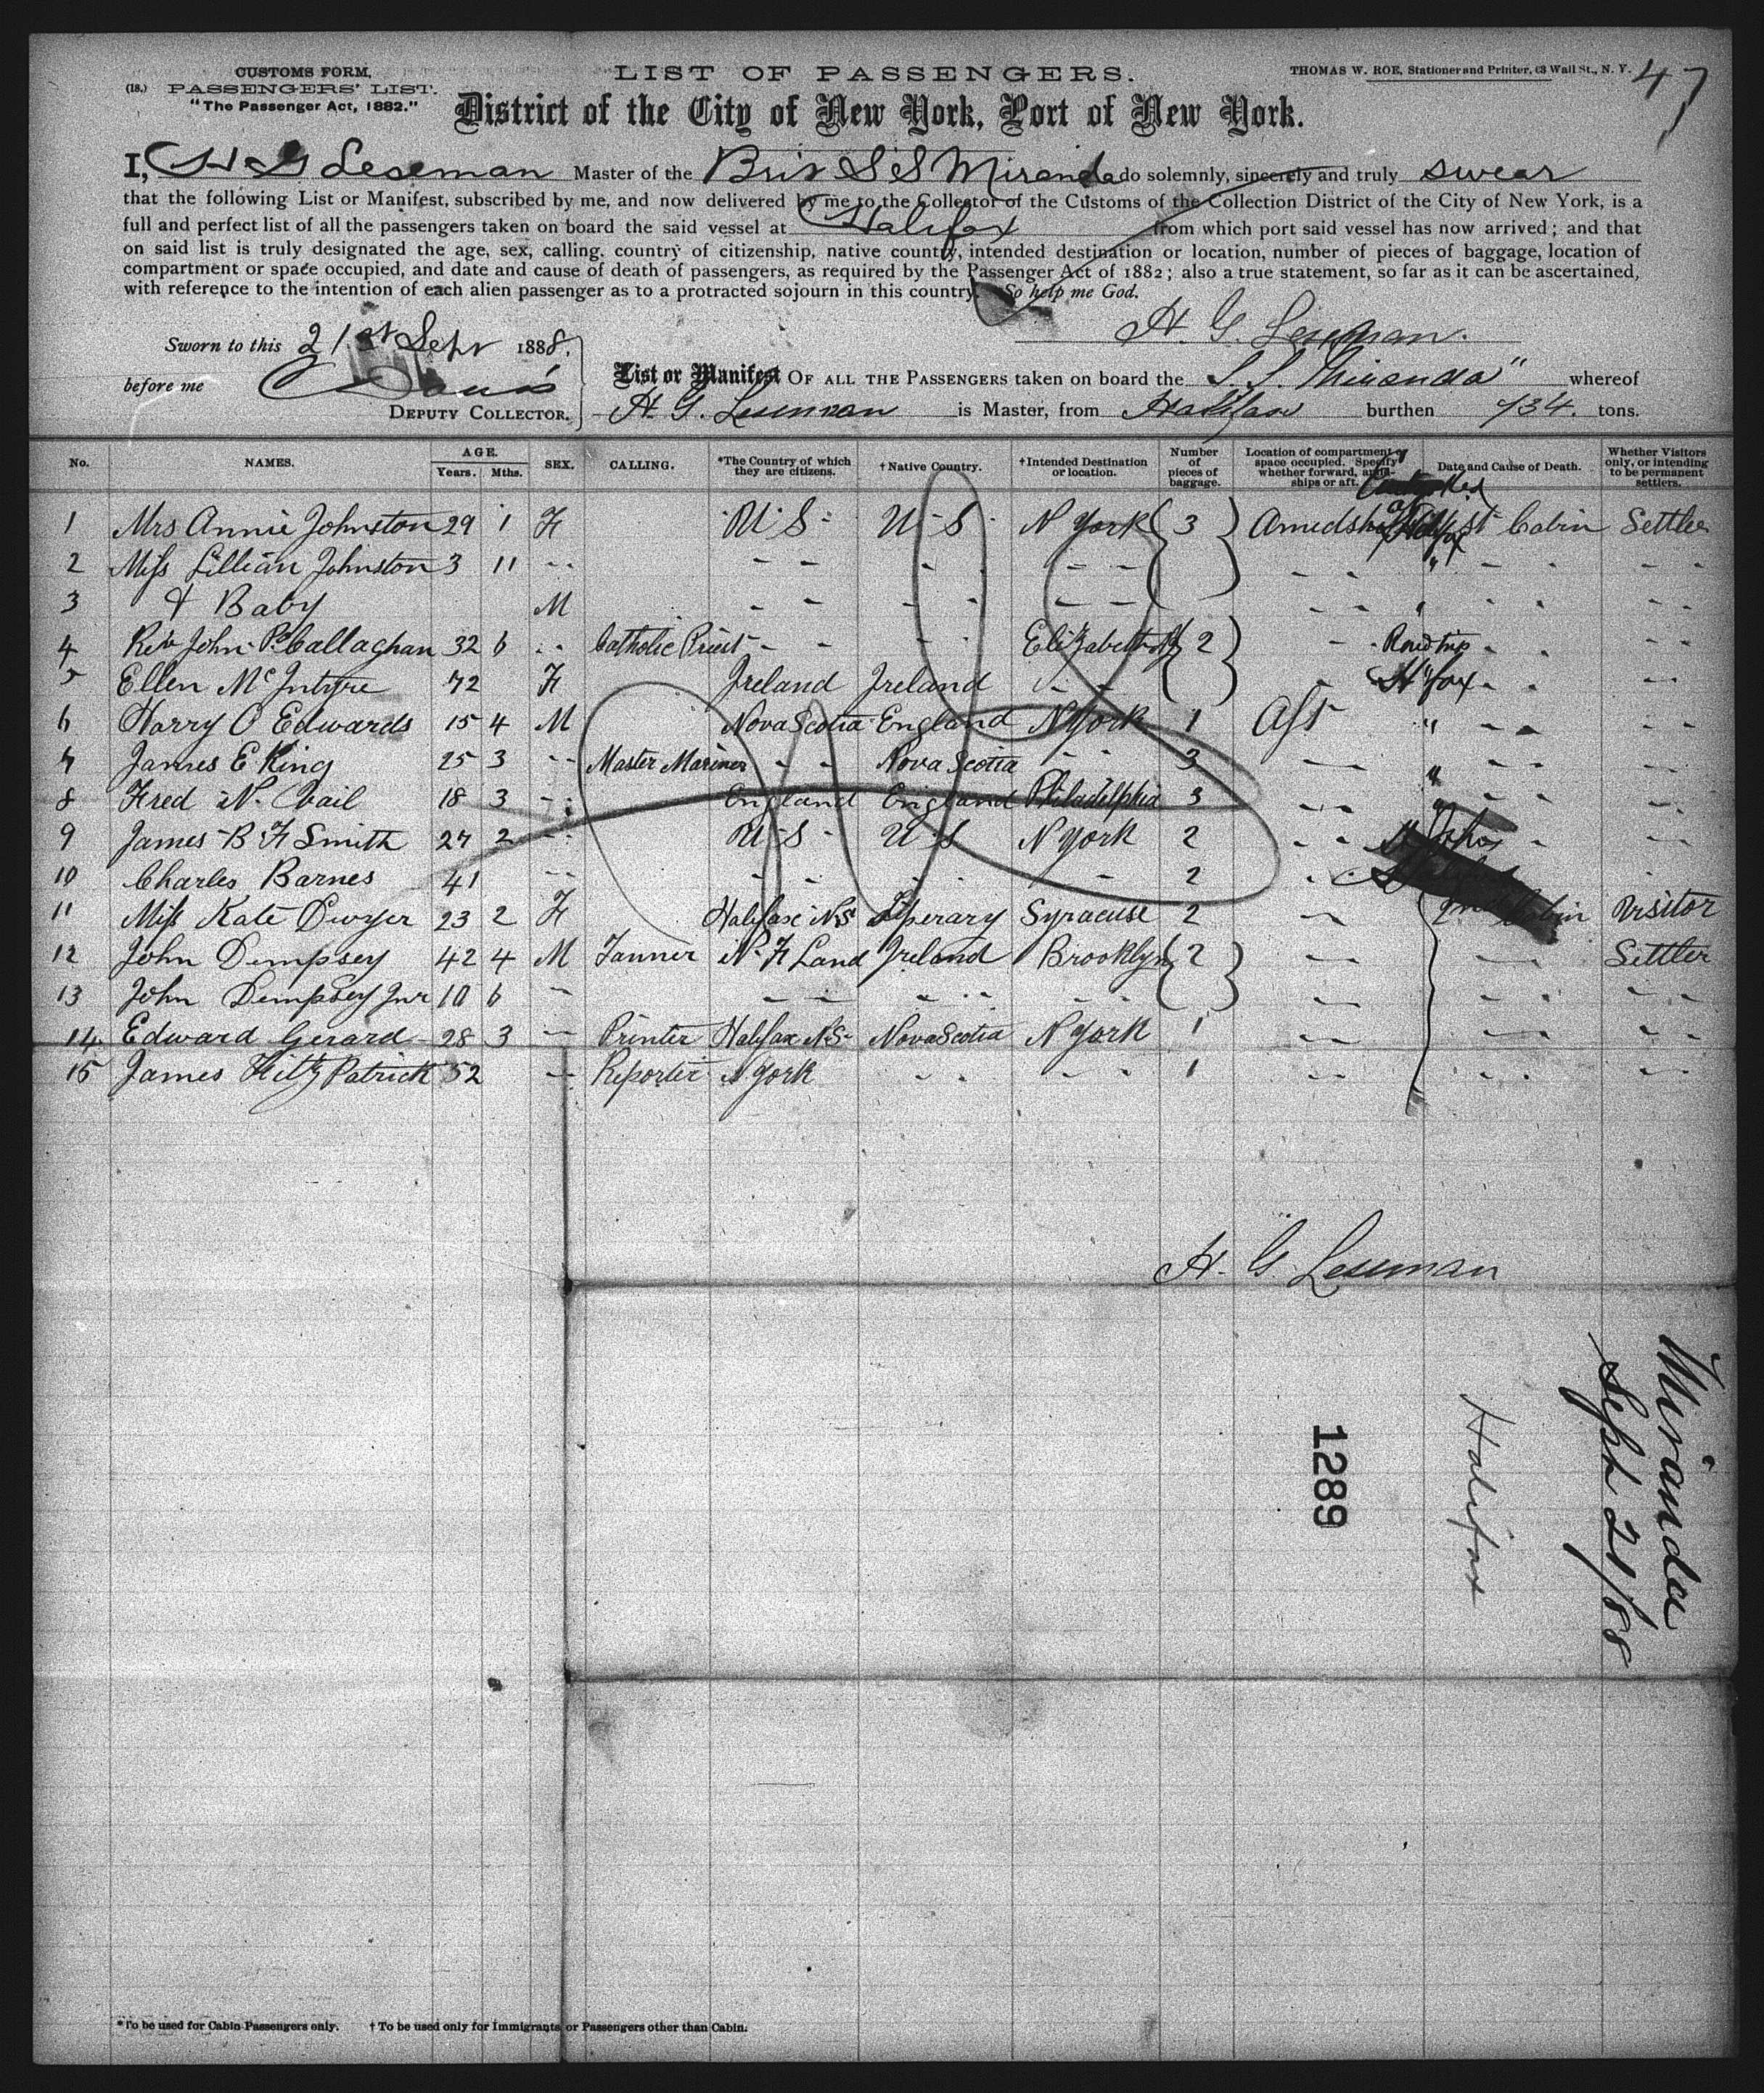 CUSTOMS FORM,
(18.) PASSENGERS' LIST.
"The Passenger Act, 1882."
LIST OF PASSENGERS.
THOMAS W. ROE, Stationer and Printer, 63 Wall St., N. Y.
47
District of the City of New York, Port of New York.
I, H G Leseman Master of the Bris S S Miranda do solemnly, sincerely and truly swear
that the following List or Manifest, subscribed by me, and now delivered by me to the Collector of the Customs of the Collection District of the City of New York, is a
full and perfect list of all the passengers taken on board the said vessel at Halifax from which port said vessel has now arrived; and that
on said list is truly designated the age, sex, calling, country of citizenship, native country, intended destination or location, number of pieces of baggage, location of
compartment or space occupied, and date and cause of death of passengers, as required by the Passenger Act of 1882; also a true statement, so far as it can be ascertained,
with reference to the intention of each alien passenger as to a protracted sojourn in this country. So help me God.
H. G. Leseman.
Sworn to this 21st Sept 1888.
before me
DEPUTY COLLECTOR.
List or Manifest OF ALL THE PASSENGERS taken on board the S. S. Miranda" whereof
H. G. Leseman is Master, from Halifax burthen 734. tons.
No. NAMES. AGE. Years. Mths. SEX. CALLING. *The Country of which they are citizens. †Native Country. †Intended Destination or location. Number of pieces of baggage. Location of compartment or space occupied. Specify whether forward, amidships or aft. Date and Cause of Death. Whether Visitors only, or intending to be permanent settlers.
1 Mrs Annie Johnston 29 1 F U S U S N York 3 Amidship Halifax 1st Cabin Settler
2 Miss Lillian Johnston 3 11 " - - - - - - - " - - - -
3 & Baby M - - - - - - - - " - - - -
4 Rev John P. Callaghan 32 6 - - Catholic Priest - - - - Elizabeth NJ 2 - Round trip - - - -
5 Ellen McIntyre 72 F Ireland Ireland - - - H'fax - - - -
6 Harry O Edwards 15 4 M Nova Scotia England N York 1 Aft " - - - -
7 James E King 25 3 - - Master Mariner - - Nova Scotia - - 3 - - " - - - -
8 Fred N. Vail 18 3 - - England England Philadelphia 3 - - " - - - -
9 James B F Smith 27 2 - - U S U S N York 2 - - St Johns - - -
10 Charles Barnes 41 - - - - - - - 2 - - -
11 Miss Kate Dwyer 23 2 F Halifax N.S Tiperary Syracuse 2 - - Cabin Visitor
12 John Dempsey 42 4 M Tanner N. F Land Ireland Brooklyn 2 - - - - Settler
13 John Dempsey Jnr 10 6 - - - - - - - - - - - - - -
14 Edward Gerard 28 3 - - Printer Halifax N.S Nova Scotia N York 1 - - - - - -
15 James FitzPatrick 52 - - Reporter N York - - - - 1 - - - - - -
H. G. Leseman
Miranda
Sept 21/88
Halifax
1289
*To be used for Cabin Passengers only. †To be used only for Immigrants or Passengers other than Cabin.